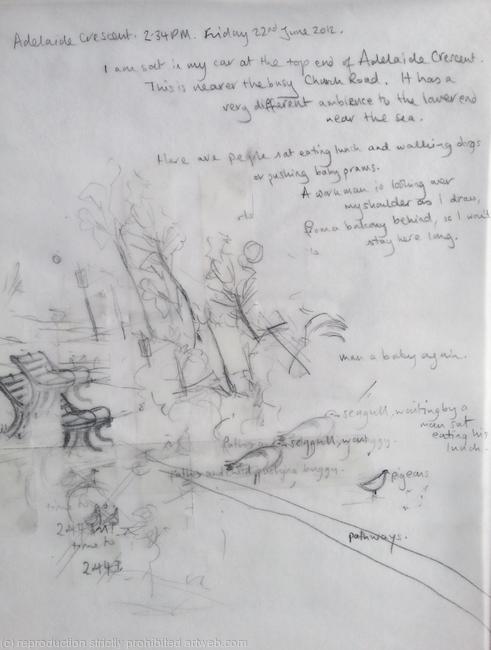 Adelaide Crescent. 2.34PM. Friday 22nd June 2012.
I am sat in my car at the top end of Adelaide Crescent.
This is nearer the busy Church Road. It has a
very different ambience to the lower end
near the sea.
Here are people sat eating lunch and walking dogs
or pushing baby prams.
A workman is looking over
my shoulder as I draw,
from a balcony behind, so I won't
stay here long.
man & baby again.
seagull, waiting by a
man sat
eating his
lunch.
seagull, wait
buggy.
pushing buggy.
pigeons
pathways.
time to
2.44
time to
2.44
(c) reproduction strictly prohibited artweb.com